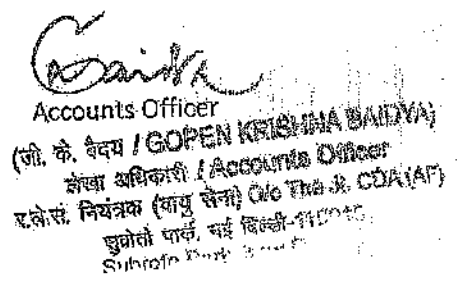 Baidya
Accounts Officer
(जी. के. बैदय / GOPEN KRISHNA BAIDYA)
लेखा अधिकारी / Accounts Officer
र.ले.सं. नियंत्रक (वायु सेना) O/o The Jt. CDA (AF)
सुब्रोतो पार्क, नई दिल्ली-110010
Subroto Park